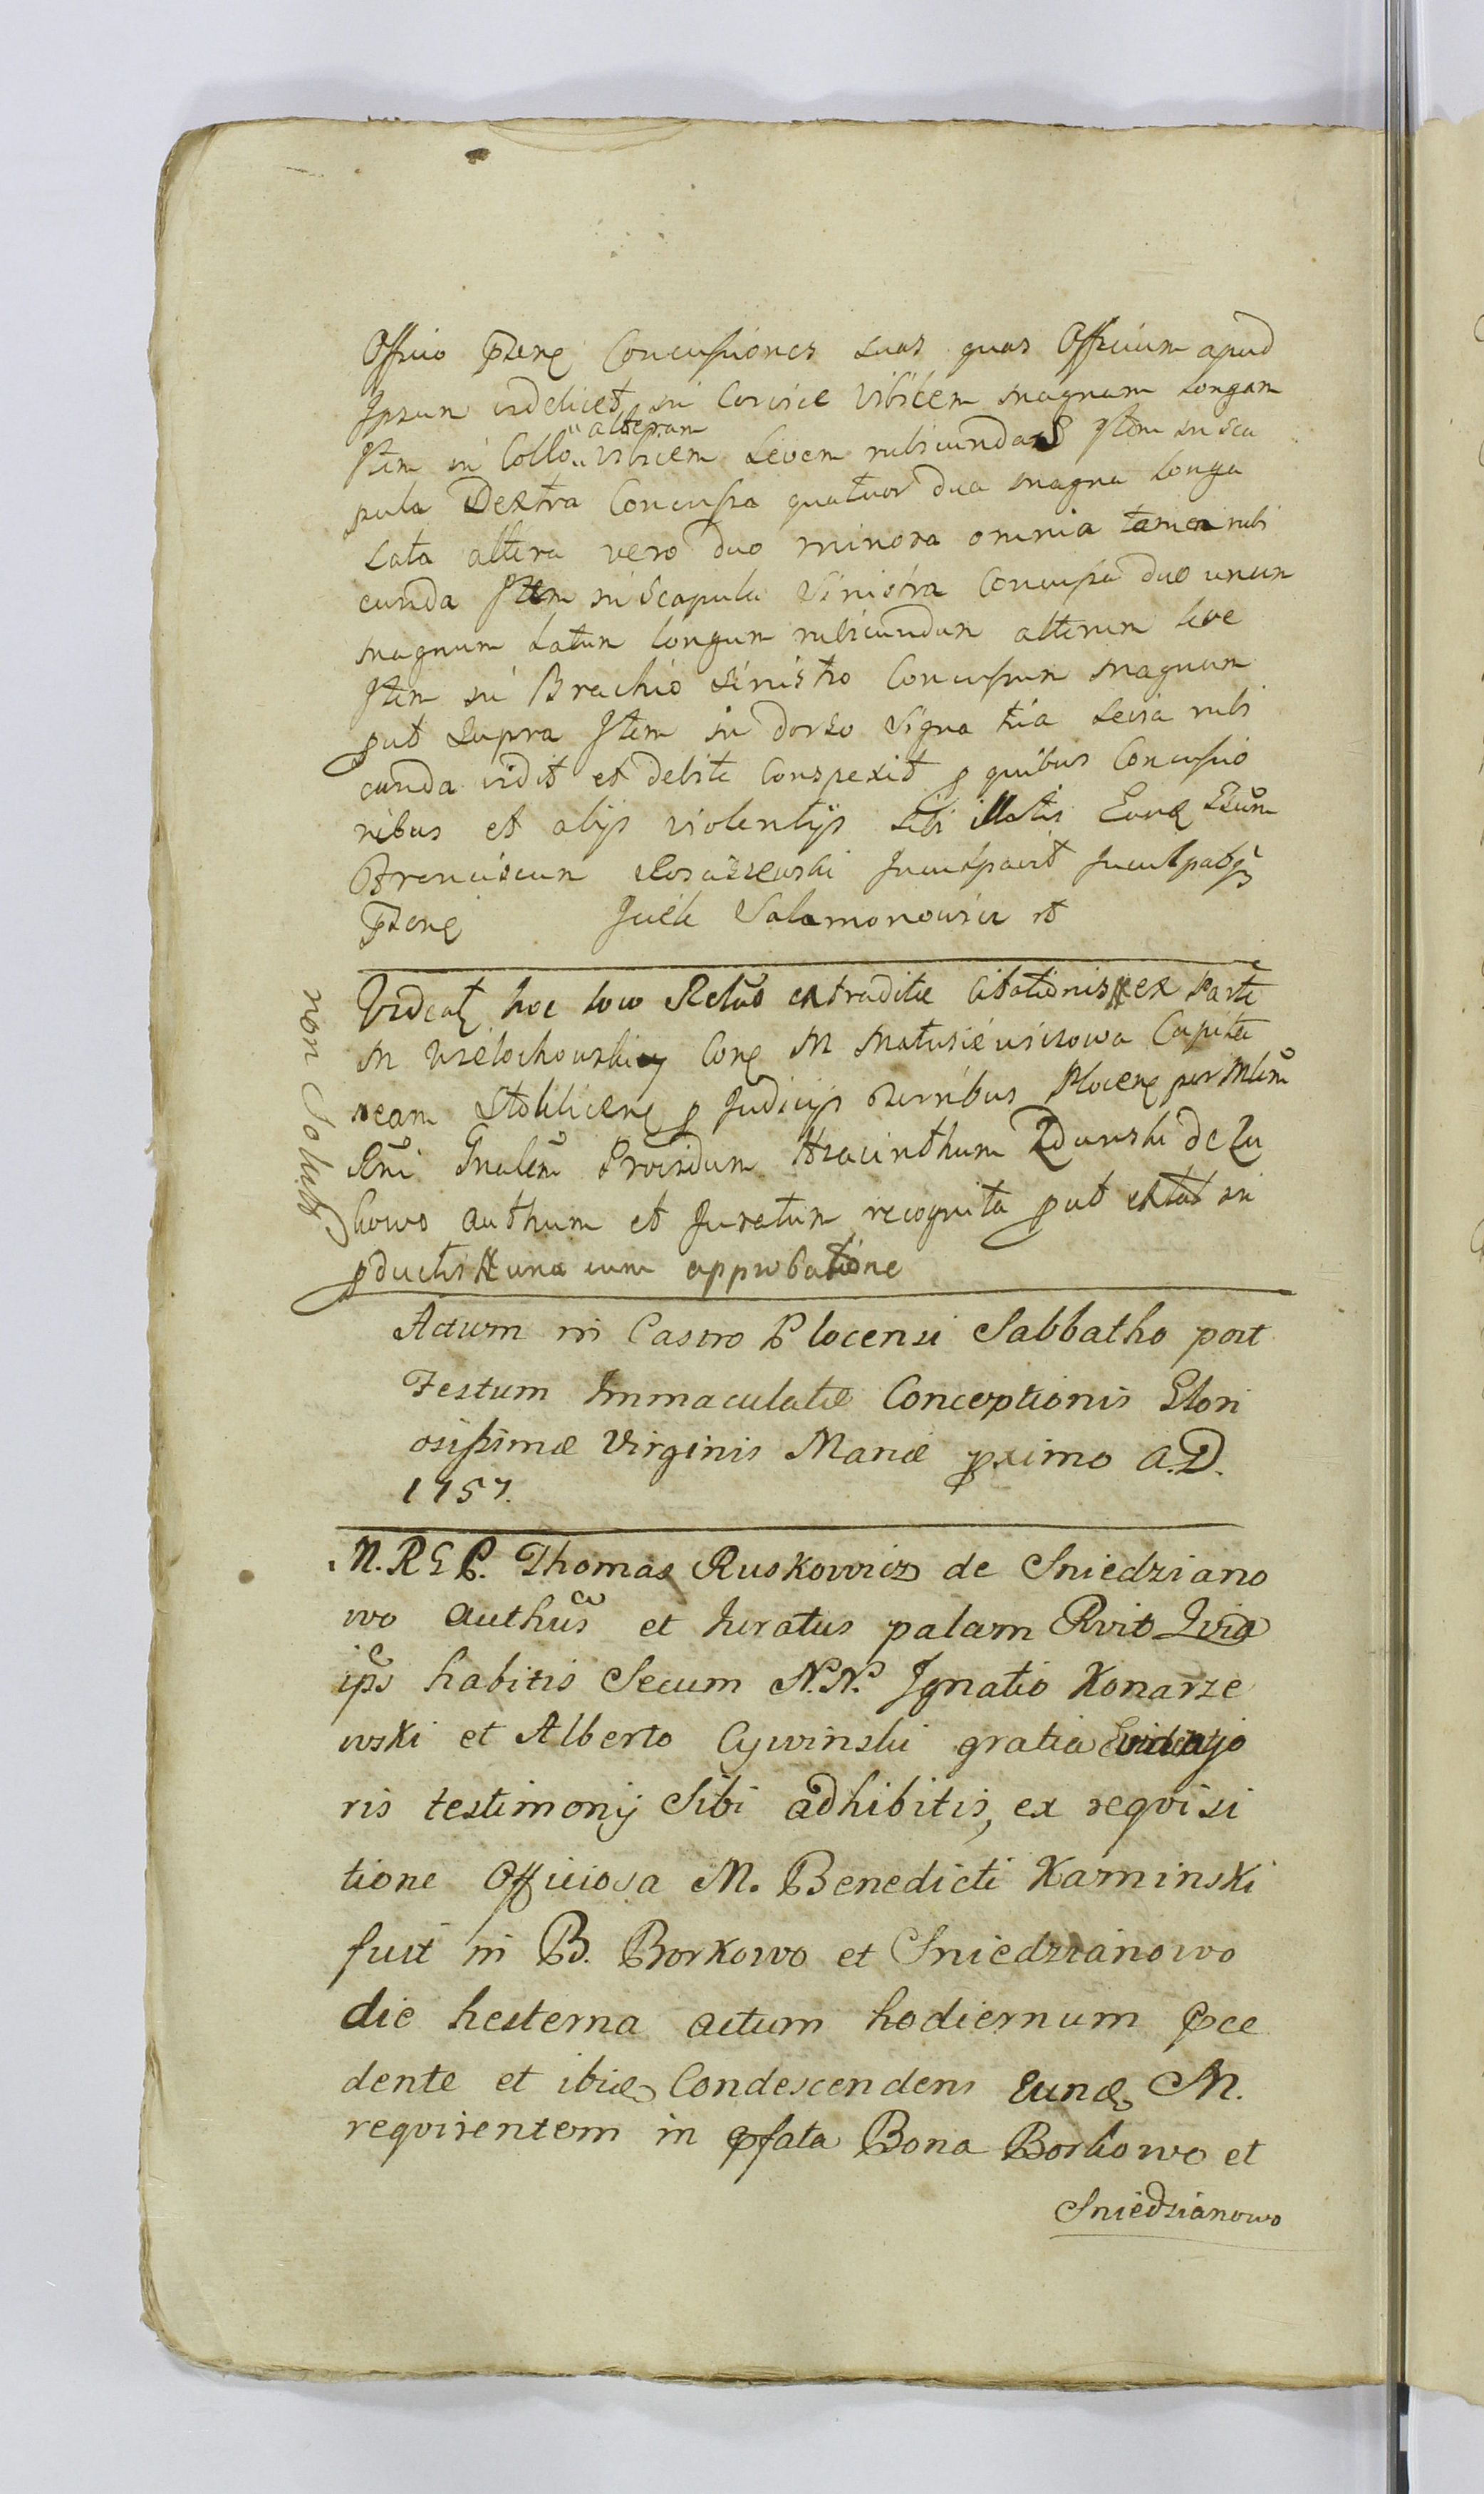 Officio pteng Concussiones suas quas Officium apud
Ipsum videlicet in Cervice Vibicem magnam longam
Item in Collo alteram vibicem Levem rubicundas Item in sca
pula Dextra Concussa quatuor dua magna longa
Lata altera vero duo minora omnia tamen rubi
cunda Item in Scapula Sinistra Concussa duo unum
magnum Latum longum rubicundum alterum leve
Item in Brachio Sinistro Concussum magnum
put Supra Item in dorso Signa tria Levia rubi
cunda vidit et debite Conspexit p quibus Concussio
nibus et alijs violentijs sibi illatis
Franciscum Inculpavit
Salamonowicz et
Videatg hoc loco Relato extraditae Citationis ex Parte
M Wielochowskieg Cong M Matusiewiczowa Capita
neam p Judicijs Terribus Plocens per Mlem
Rni Gnalem Providum Hyacinthum Zdunski de Zu
kowo authum et Juratum recognita put extat in
pductis una cum approbatione
non Solut
Actum in Castro Plocensi Sabbatho post
Festum Immaculatæ Conceptionis Glori
osissimæ Virginis Mariæ pximo A.D.
1757.
M.R.G.P. Thomas Ruskowicz de Sniedziano
wo authus et Juratus palam Rvit Qvia
ips habitis Secum N.N. Ignatio Konarze
wski et Alberto Cywinski gratia
ris testimonij Sibi adhibitis, ex reqvisi
tione Officiosa M. Benedicti Kaminski
fuit in B. Borkowo et Sniedzianowo
die hesterna actum hodiernum pce
dente et ibid Condescendens Eund M.
reqvirentem in pfata Bona Borkowo et
Sniedzianowo